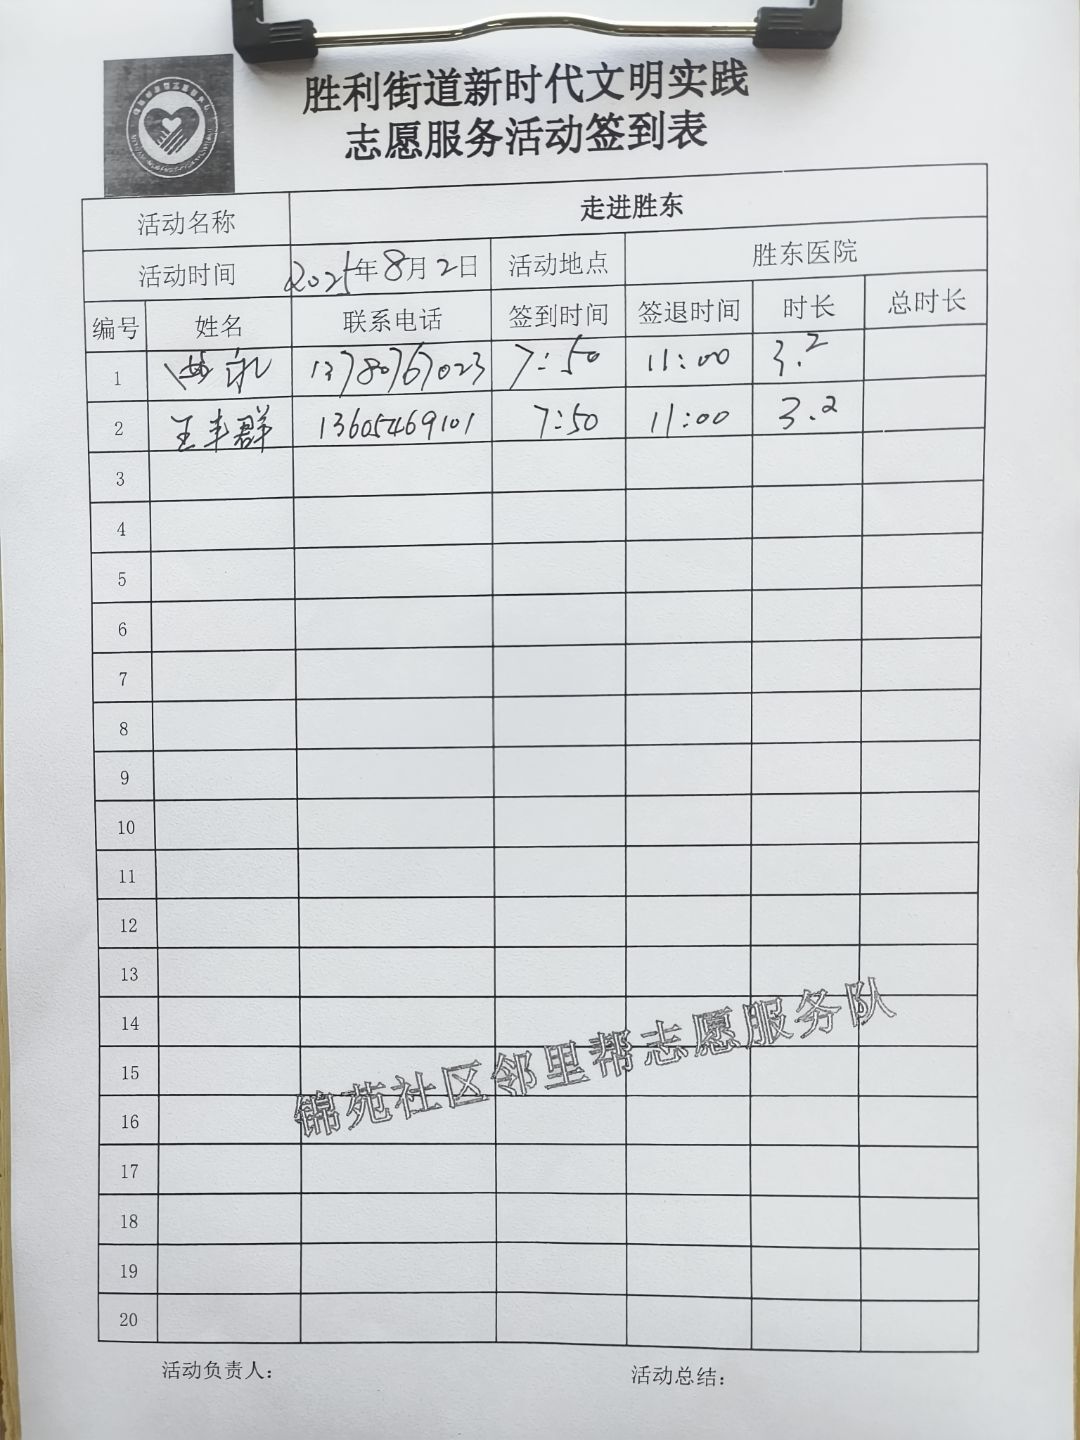 胜利街道新时代文明实践
志愿服务活动签到表
活动名称 走进胜东
活动时间 2025年8月2日 活动地点 胜东医院
编号 姓名 联系电话 签到时间 签退时间 时长 总时长
1 13780767023 7:50 11:00 3.2
2 王丰群 13605469101 7:50 11:00 3.2
3
4
5
6
7
8
9
10
11
12
13
14
15
16
17
18
19
20
锦苑社区邻里帮志愿服务队
活动负责人: 活动总结: